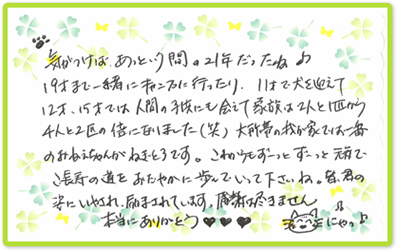 気がつけば、あっという間の21年だったね♪
19才まで一緒に キャンプに行ったり、11才で犬を迎えて
12才、15才では人間の子供にも会えて家族は2人と1匹から
4人と2匹の倍になりました(笑) 大所帯の我が家では一番
のおねえちゃんがねこです。これからもずーっとずーっと元気で
ご長寿の道をあたたかに歩んでいって下さいね。毎日の
姿にいやされ、励まされています。感謝は尽きません
本当にありがとう♥♥♥ にゃっ♪